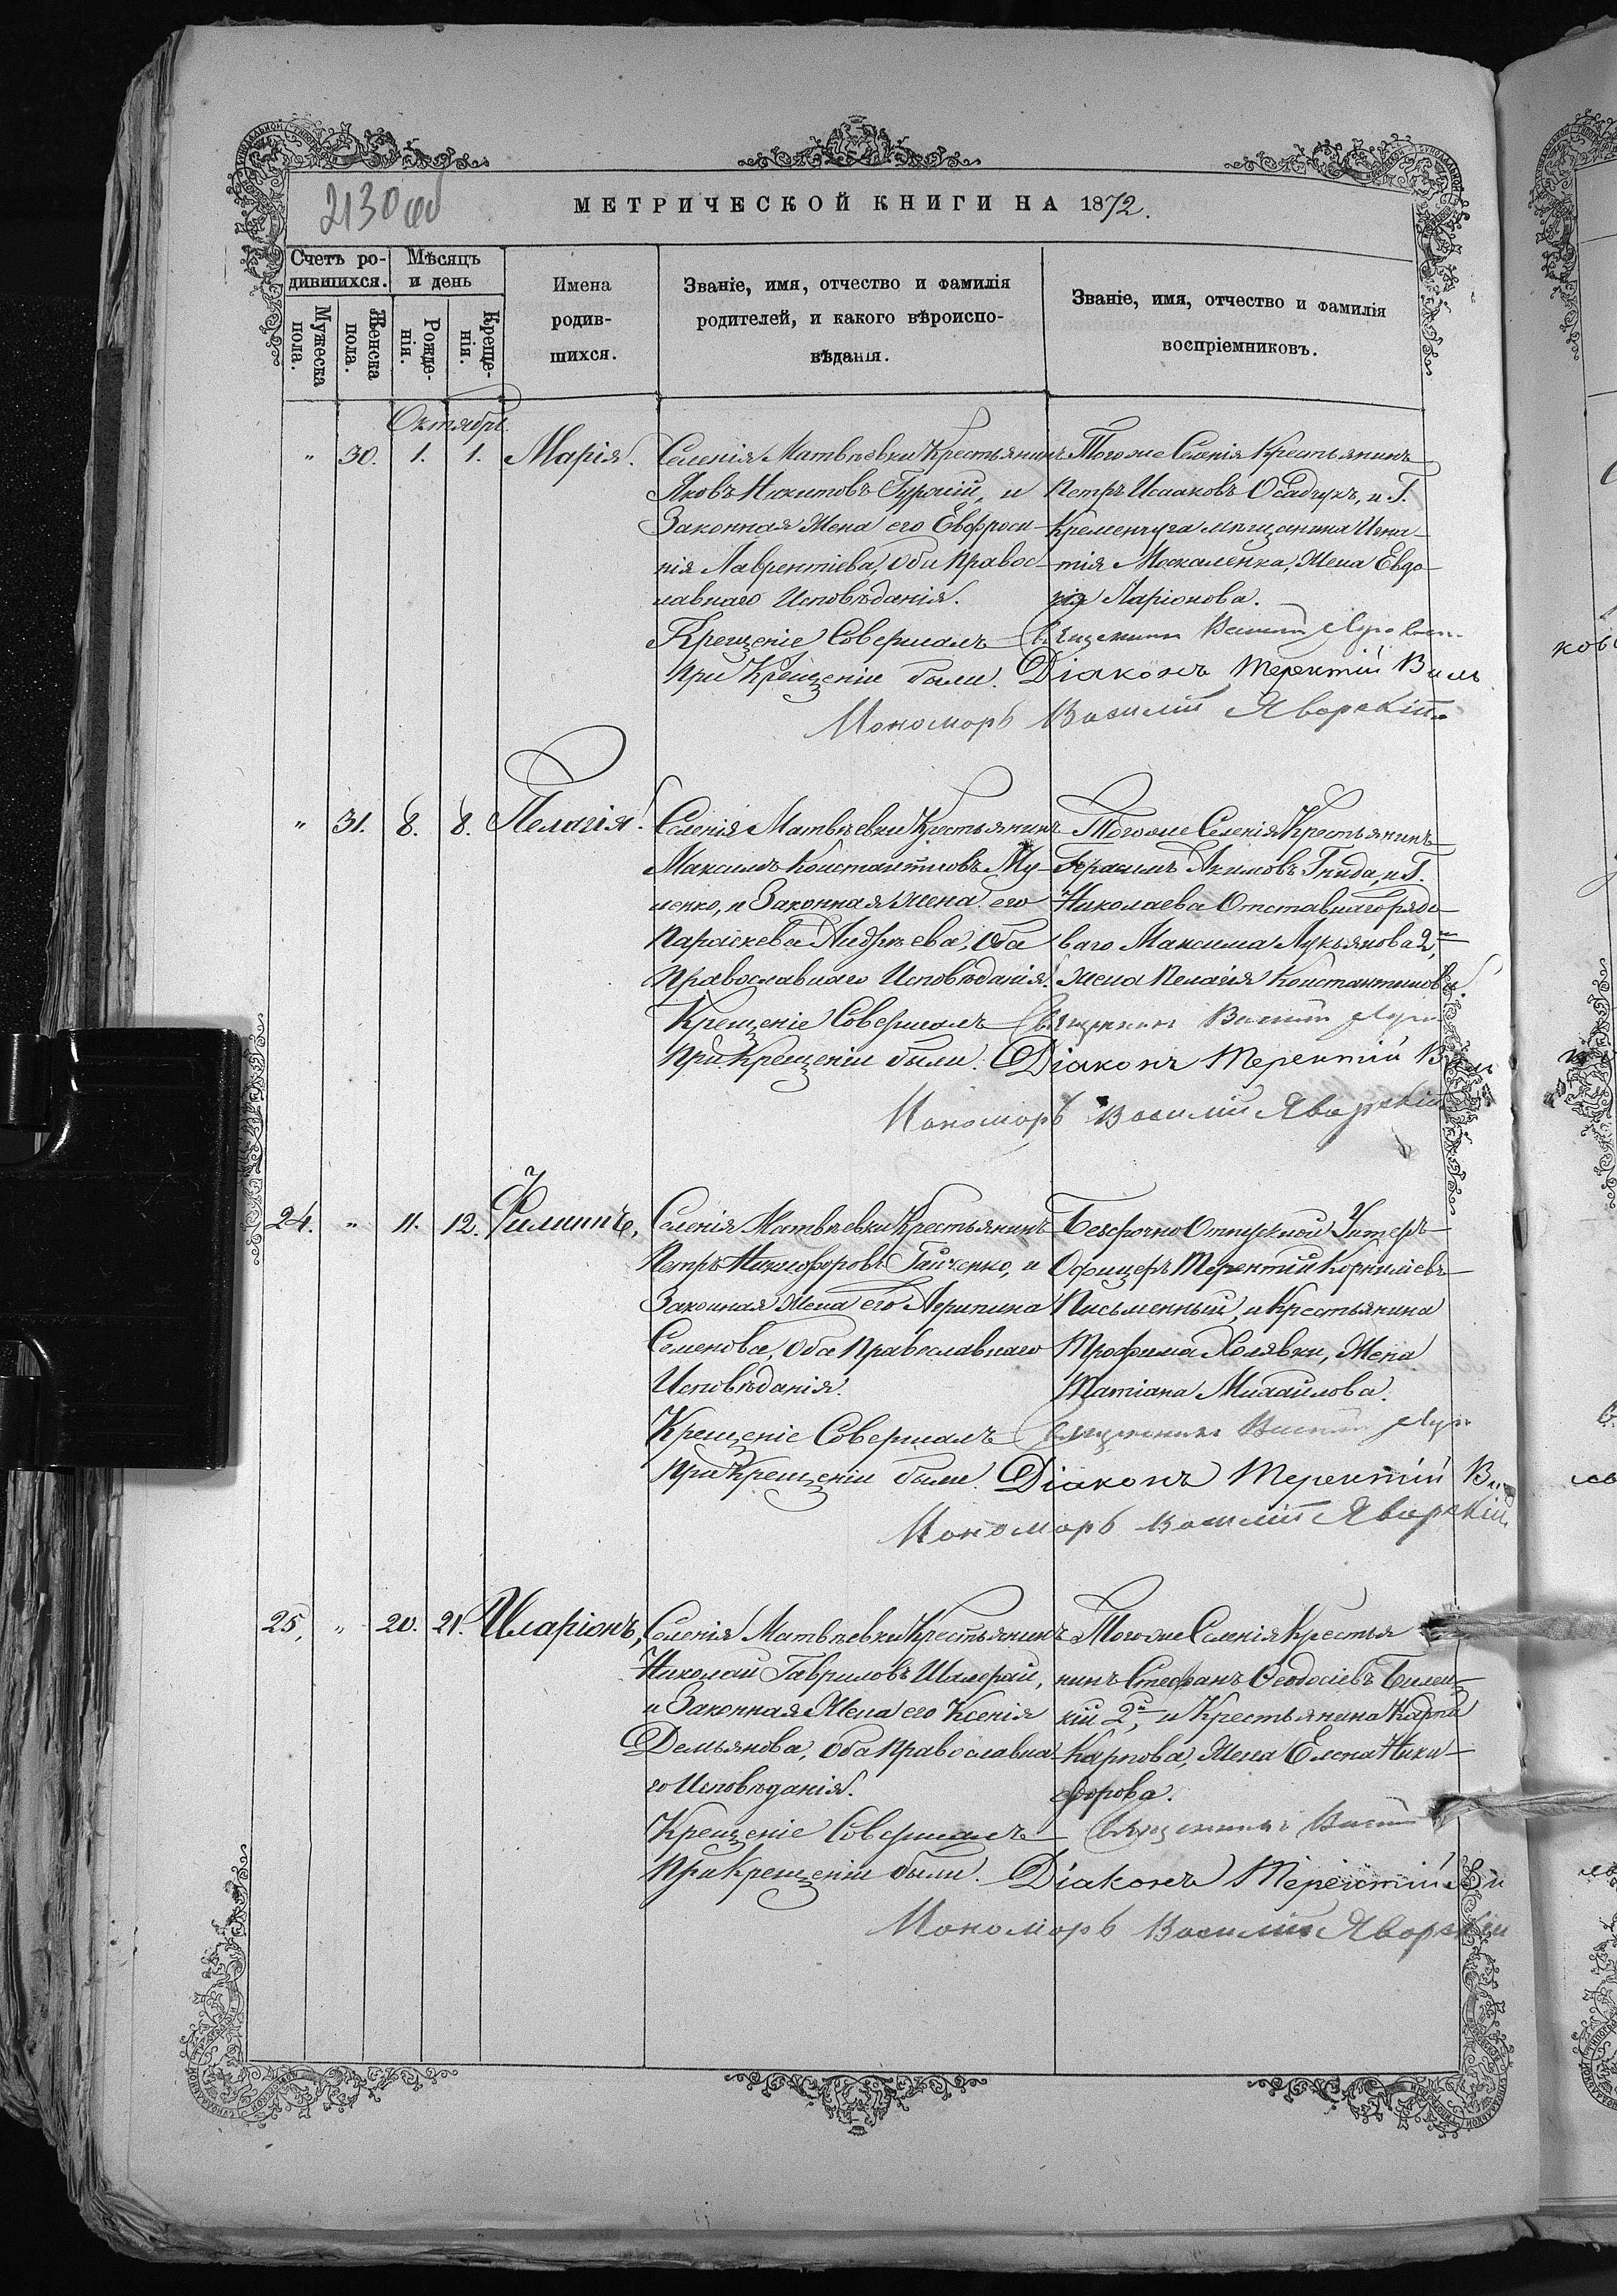 2130 об
МЕТРИЧЕСКОЙ КНИГИ НА 1872.
Счетъ ро-
дившихся.
Мѣсяцъ
и день
Мужеска
пола.
Женска
пола.
Рожде-
нія.
Креще-
нія.
Имена
родив-
шихся.
Званіе, имя, отчество и фамилія
родителей, и какого вѣроиспо-
вѣданія.
Званіе, имя, отчество и фамилія
воспріемниковъ.
Октябрь.
" 30. 1. 1. Марія.
Селенія Матвѣевки Крестьянинъ
Яковъ Никитовъ Гурскій, и
Законная Жена его Евфроси-
нія Лаврентіева, оби Правос-
лавнаго Исповѣданія.
Тогоже Селенія Крестьянинъ
Петръ Исааковъ Осадчукъ, и Г.
Кременчуга мѣщанина Игна-
тія Москаленка, Жена Евдо-
кія Ларіонова.
Крещеніе Совершалъ Священникъ Василій
При Крещеніи были. Діаконъ Терентій
Пономарь Василій Яворскій
" 31. 8. 8. Пелагія.
Селенія Матвѣевки Крестьянинъ
Максимъ Константиновъ Му-
ленко, и Законная Жена его
Параскева Андрѣева, Оба
Православнаго Исповѣданія.
Тогоже Селенія Крестьянинъ
Герасимъ Акимовъ Гнида, и Г.
Николаева Отставнаго рядо-
ваго Максима Лукьянова 2,
Жена Пелагія Константинова.
Крещеніе Совершалъ Священникъ Василій
При Крещеніи были. Діаконъ Терентій
Пономарь Василій Яворскій
24. " 11. 12. Филиппъ,
Селенія Матвѣевки Крестьянинъ
Петръ Никифоровъ Гайченко, и
Законная Жена его Агрипина
Семенова, Оба Православнаго
Исповѣданія.
Безсрочно Отпускной Унтеръ-
Офицеръ Терентій Корнилiевъ
Письменный, и Крестьянина
Трофима Холявки, Жена
Татіана Михайлова.
Крещеніе Совершалъ Священникъ Василій
При Крещеніи были. Діаконъ Терентій
Пономарь Василій Яворскій
25, " 20. 21. Иларіонъ,
Селенія Матвѣевки Крестьянинъ
Николай Гавриловъ Шамрай,
и Законная Жена его Ксенія
Демьянова, Оба Православна-
го Исповѣданія.
Тогоже Селенія Крестья
нинъ Стефанъ Ѳеодосіевъ Билец-
кій 2й, и Крестьянина Карпа
Карпова, Жена Елена Ники-
форова.
Крещеніе Совершалъ Священникъ
При Крещеніи были. Діаконъ Терентій
Пономарь Василій Яворскій